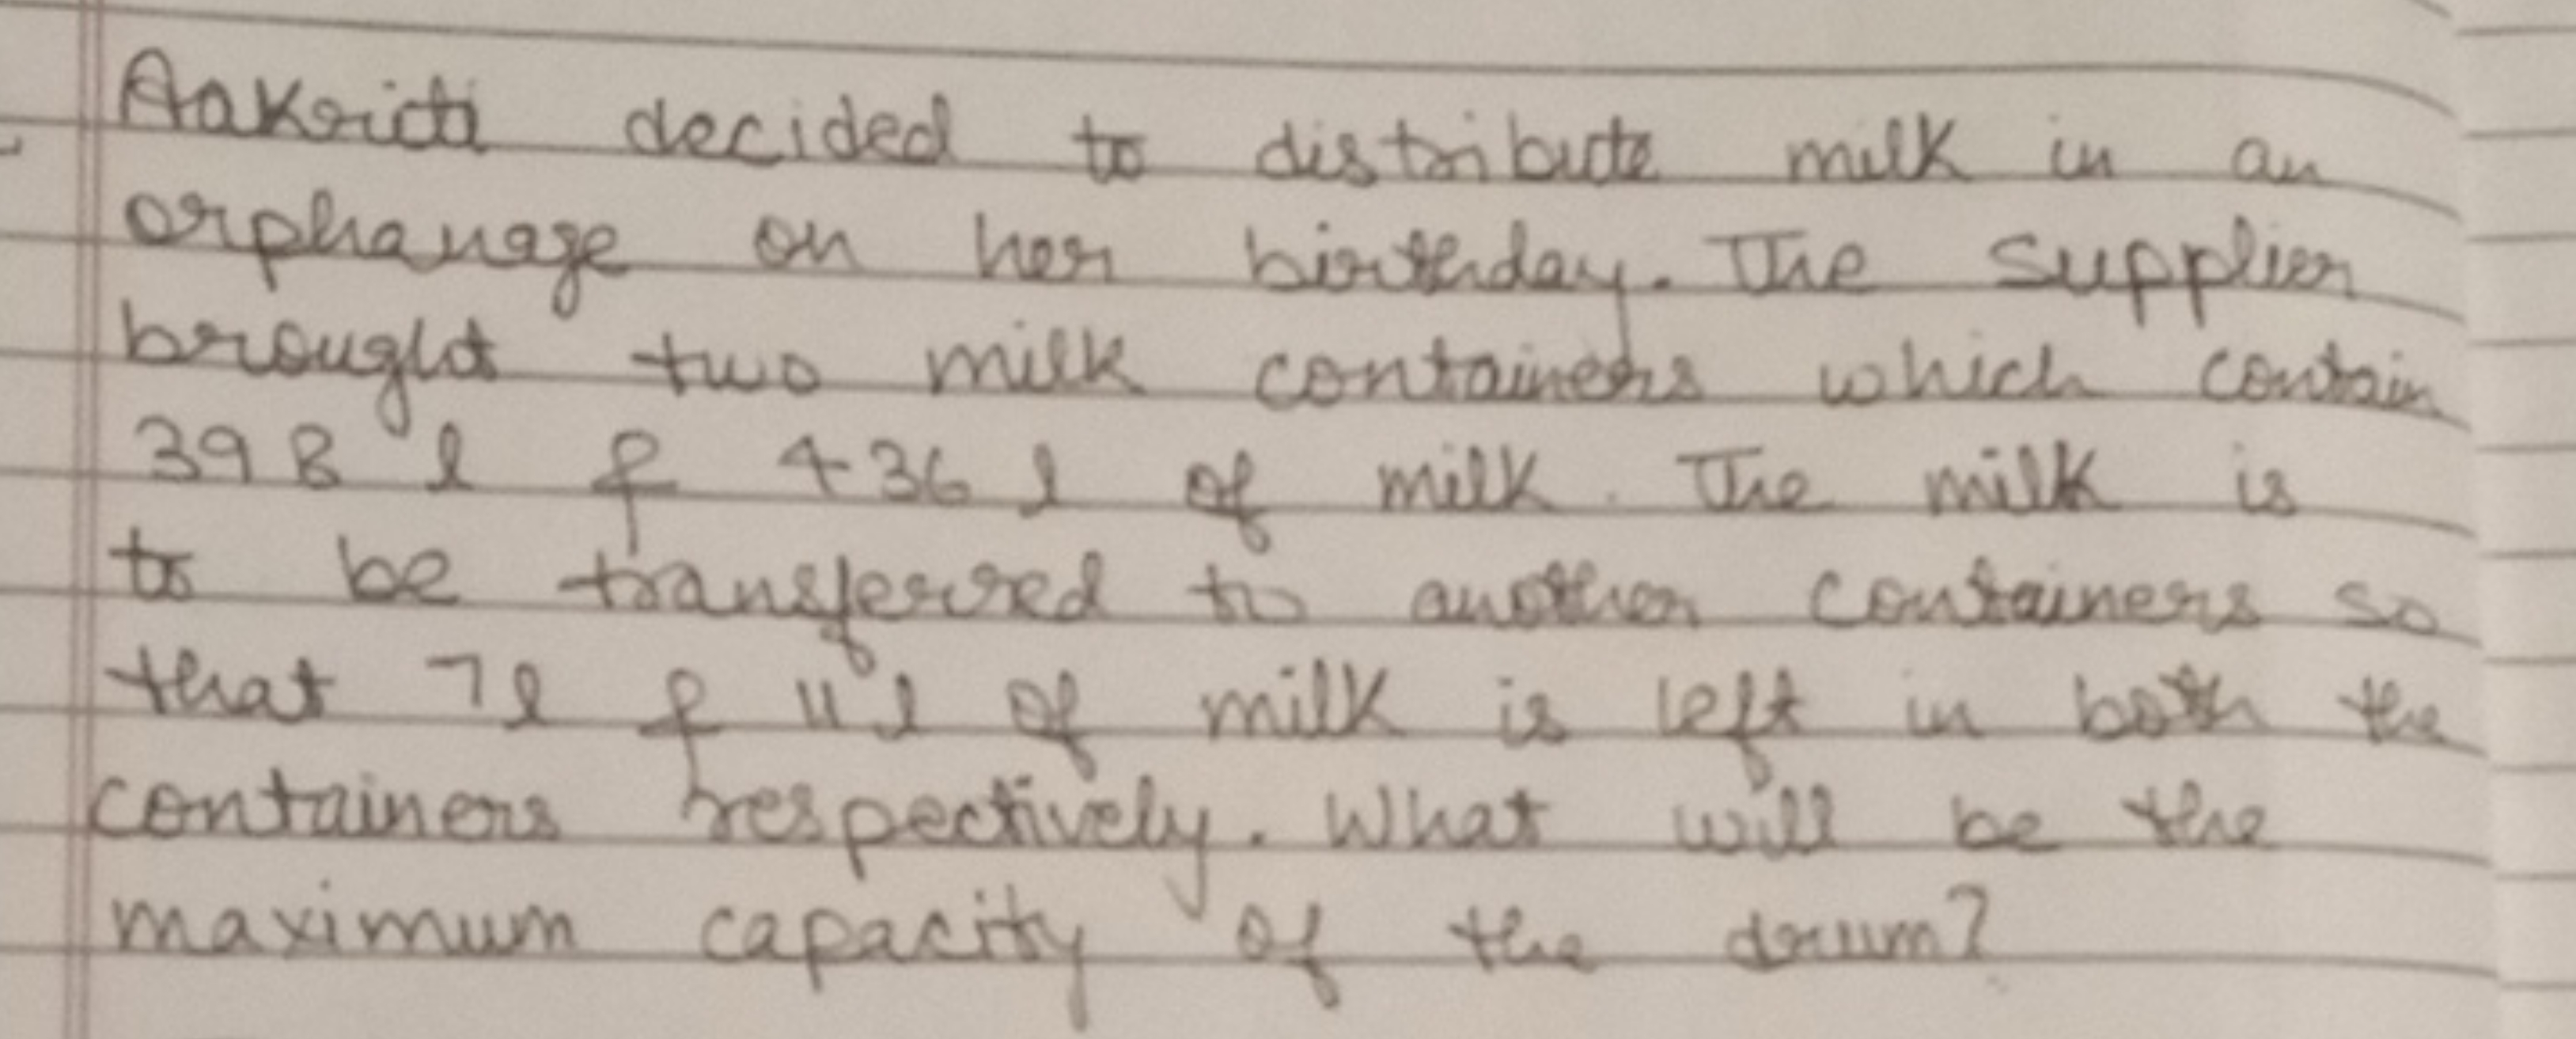 Aakriti decided to distribute milk in an
orphanage on her birthday. The supplier
brought two milk containers which contain
398 l & 436 l of milk. The milk is
to be transferred to another containers so
that 7l & 11 l of milk is left in both the
containers respectively. What will be the
maximum capacity of the drum?